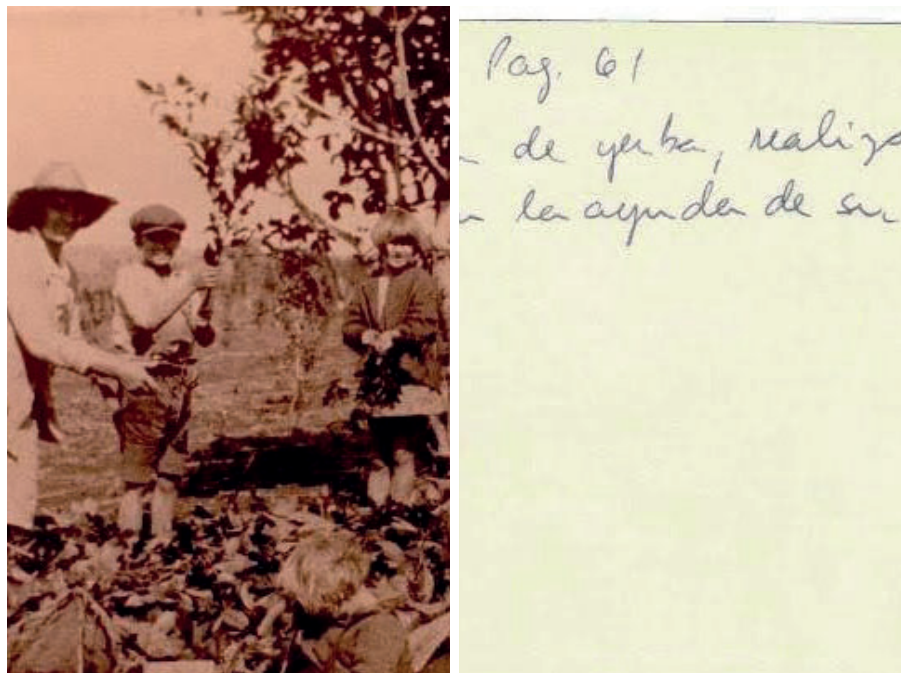 Pag. 61
de yerba, realiza
la ayuda de su